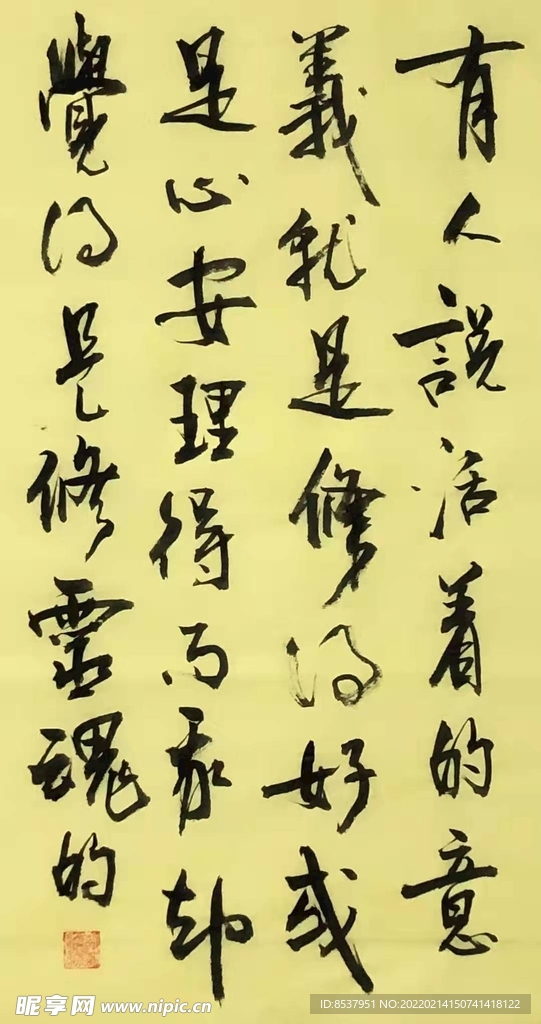 有人説活着的意
義就是修得好或
是心安理得而我却
覺得是修靈魂的
昵享网 www.nipic.cn
ID:8537951 NO:20220214150741418122